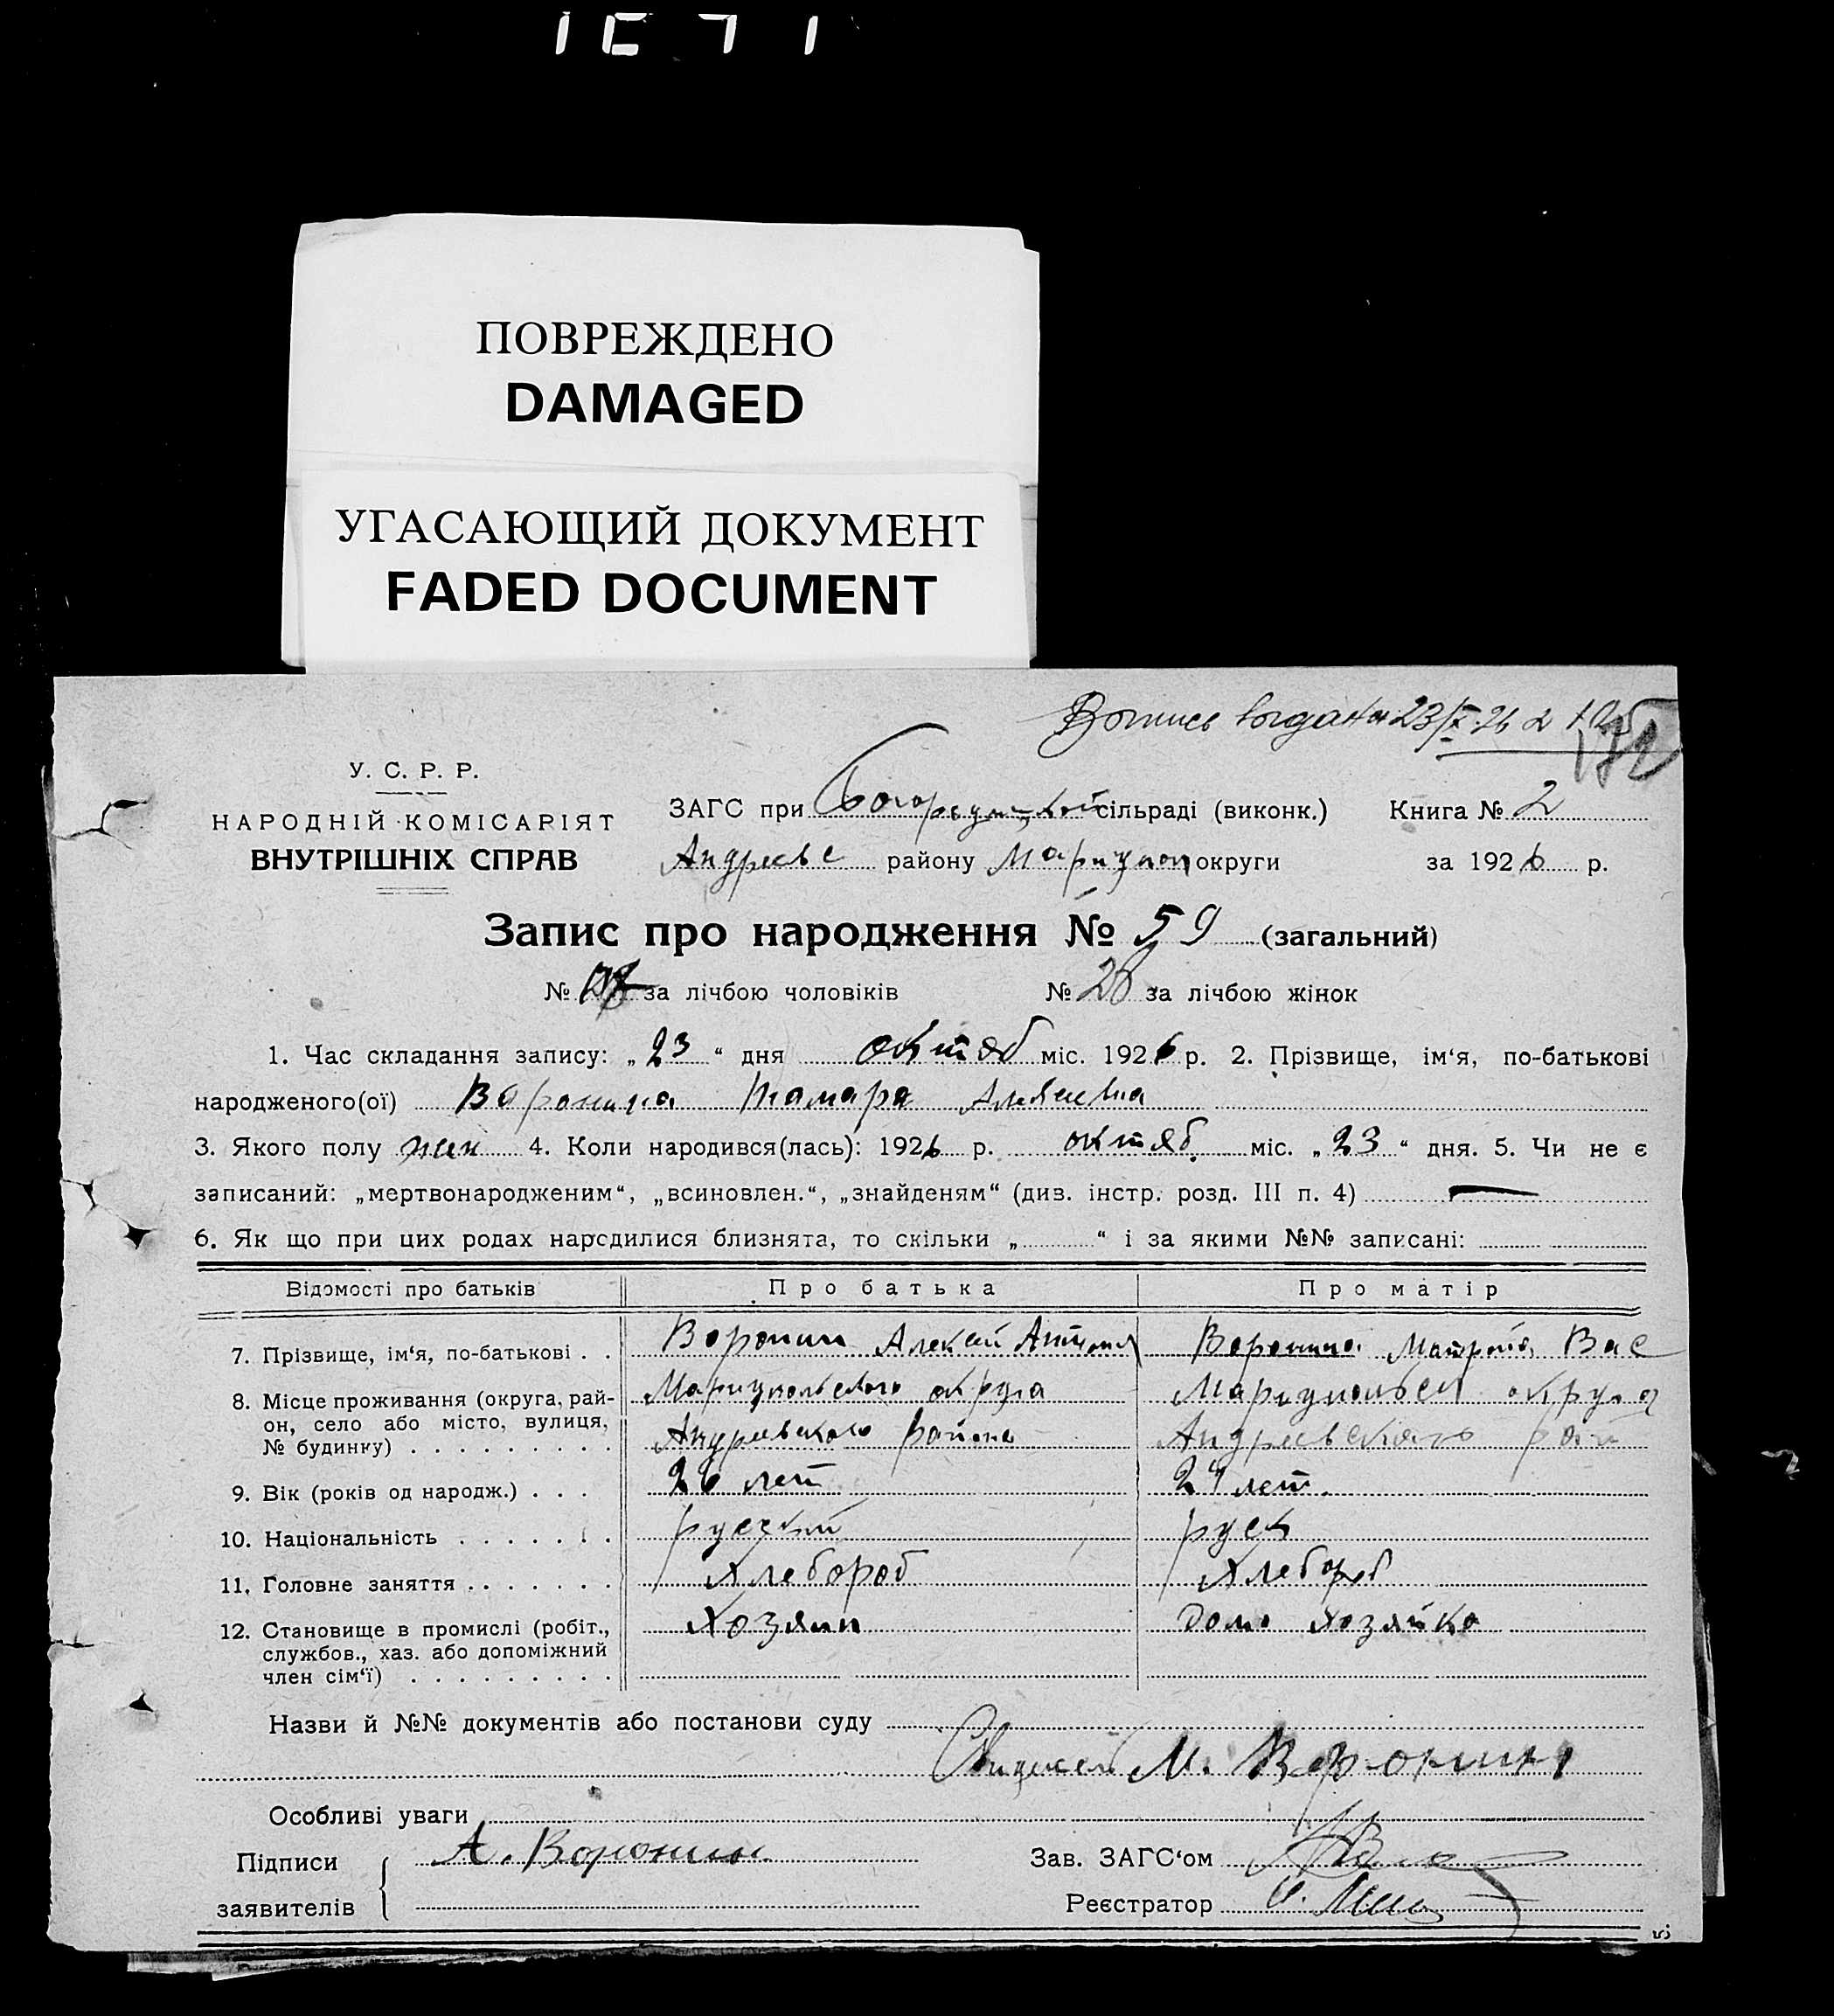 ПОВРЕЖДЕНО
DAMAGED
УГАСАЮЩИЙ ДОКУМЕНТ
FADED DOCUMENT
У. С. Р. Р.
НАРОДНІЙ КОМІСАРІЯТ
ВНУТРІШНІХ СПРАВ
ЗАГС при сільраді (виконк.) Книга № 2
Андреевс району Мариупол округи за 1926 р.
Запис про народження № 59 (загальний)
№ за лічбою чоловіків № 28 за лічбою жінок
1. Час складання запису: „23“ дня октяб міс. 1926 р. 2. Прізвище, ім‘я, по-батькові
народженого(ої) Воронина Тамара
3. Якого полу жен 4. Коли народився(лась): 1926 р. октяб. міс. „23“ дня. 5. Чи не є
записаний: „мертвонародженим“, „всиновлен.“, „знайденям“ (див. інстр. розд. III п. 4) —
6. Як що при цих родах народилися близнята, то скільки „ “ і за якими №№ записані:
Відомості про батьків Про батька Про матір
7. Прізвище, ім‘я, по-батькові . . Воронин Алексей Воронина Вас
8. Місце проживання (округа, рай- Мариупольского округа Мариупольск округа
он, село або місто, вулиця, Андреевского района Андреевского рай
№ будинку) . . . . . . . . .
9. Вік (років од народж.) . . . 26 лет 24 лет.
10. Національність . . . . . . . русский руск
11. Головне заняття . . . . . . . Хлебороб Хлебороб
12. Становище в промислі (робіт., Хозяин домо хозяйка
службов., хаз. або допоміжний
член сім‘ї) . . . . . . . . .
Назви й №№ документів або постанови суду
М. Воронин
Особливі уваги
Підписи А. Воронин Зав. ЗАГС‘ом
заявителів Реєстратор